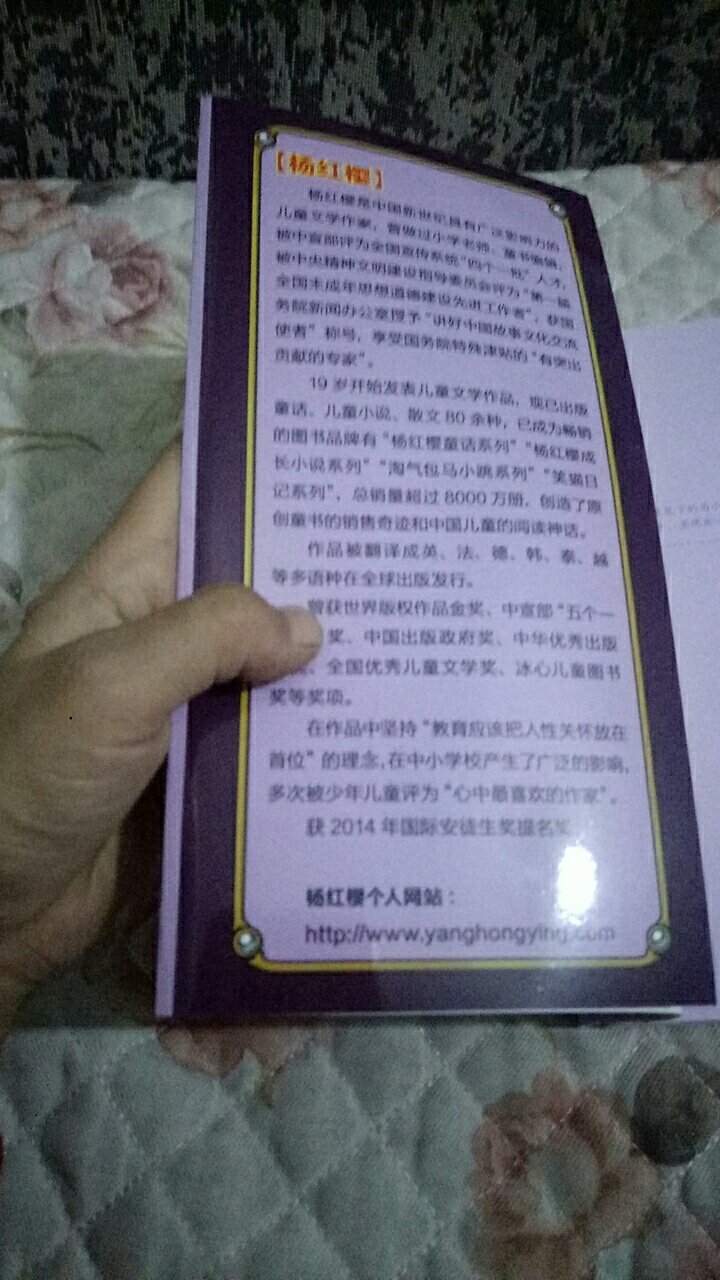 【杨红樱】
杨红樱是中国新世纪具有广泛影响力的
儿童文学作家，曾做过小学老师、童书编辑，
被中宣部评为全国宣传系统“四个一批”人才，
被中央精神文明建设指导委员会评为“第一届
全国未成年思想道德建设先进工作者”，获国
务院新闻办公室授予“讲好中国故事文化交流
使者”称号，享受国务院特殊津贴的“有突出
贡献的专家”。
19 岁开始发表儿童文学作品，现已出版
童话、儿童小说、散文 80 余种，已成为畅销
的图书品牌有“杨红樱童话系列”“杨红樱成
长小说系列”“淘气包马小跳系列”“笑猫日
记系列”，总销量超过 8000 万册，创造了原
创童书的销售奇迹和中国儿童的阅读神话。
作品被翻译成英、法、德、韩、泰、越
等多语种在全球出版发行。
曾获世界版权作品金奖、中宣部“五个一
奖、中国出版政府奖、中华优秀出版
、全国优秀儿童文学奖、冰心儿童图书
奖等奖项。
在作品中坚持“教育应该把人性关怀放在
首位”的理念，在中小学校产生了广泛的影响，
多次被少年儿童评为“心中最喜欢的作家”。
获 2014 年国际安徒生奖提名奖
杨红樱个人网站：
http://www.yanghongying.com